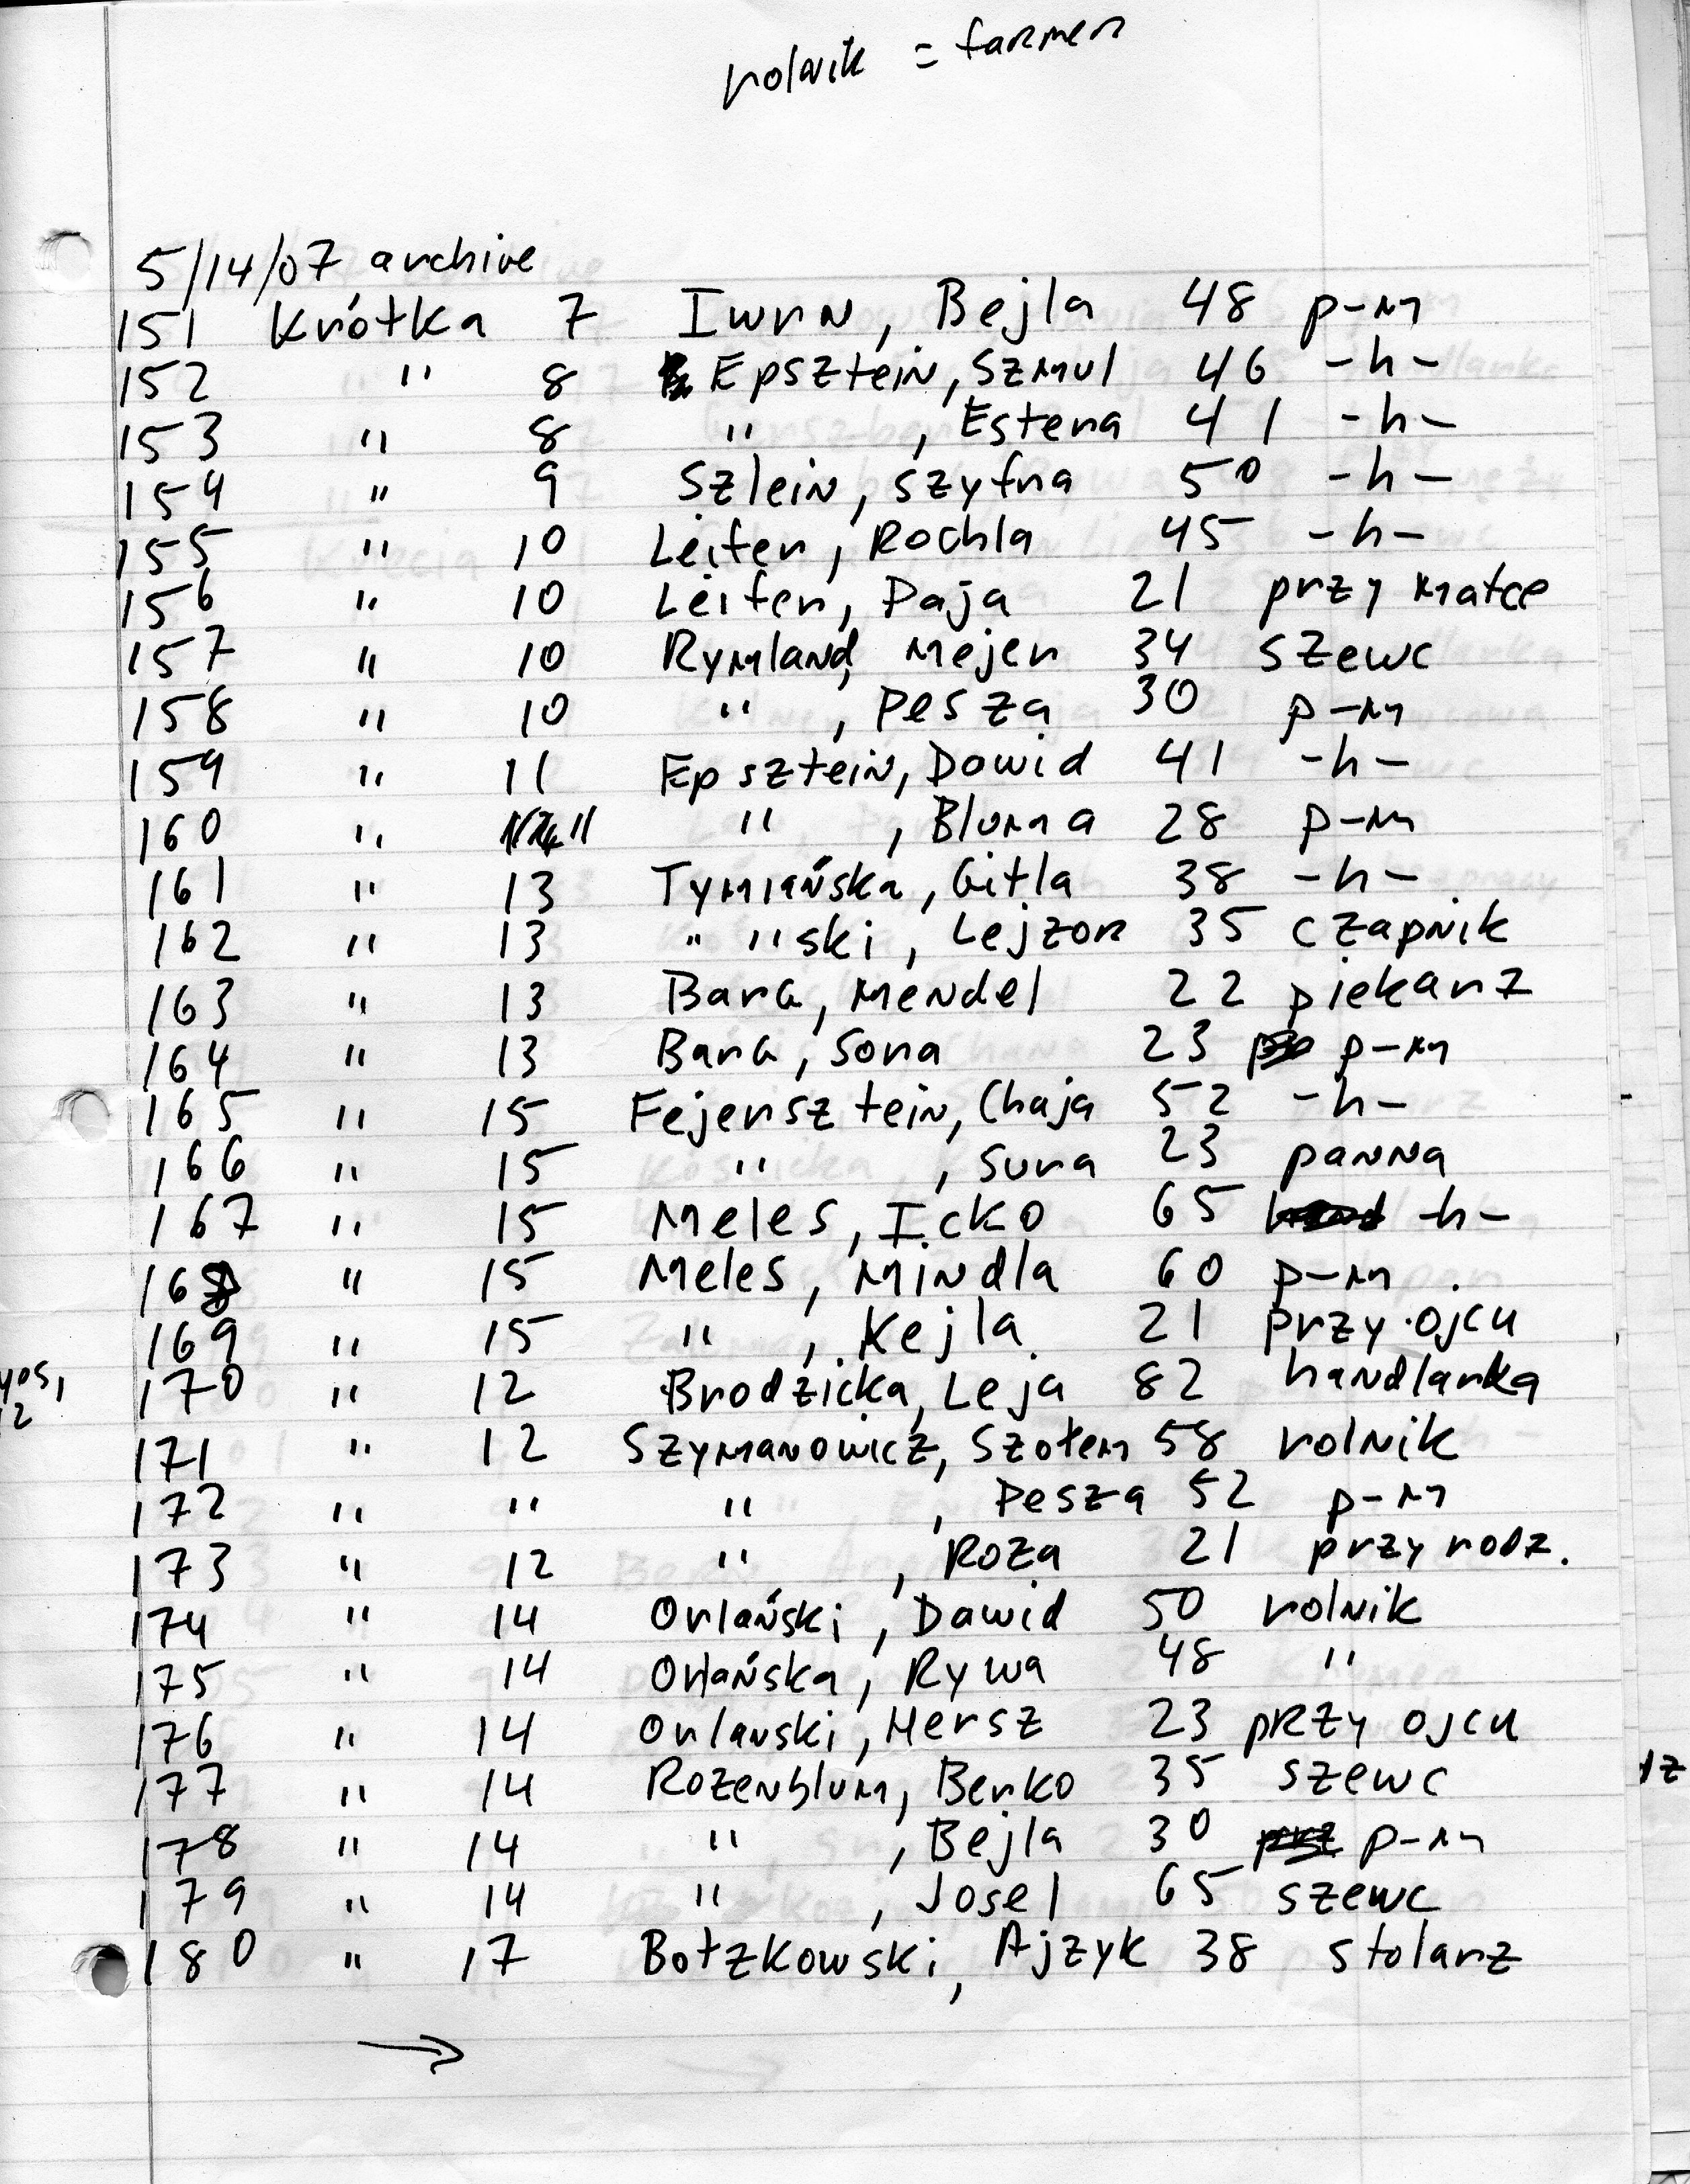 rolnik = farmer
5/14/07 archive
151 Krótka 7 Iwrn, Bejla 48 p-m
152 " 8 Epsztein, Szmul 46 -h-
153 " 8 " , Estera 41 -h-
154 " 9 Szlein, Szyfra 50 -h-
155 " 10 Leifer, Rochla 45 -h-
156 " 10 Leifer, Daja 21 przy matce
157 " 10 Rymland, Mejer 34 szewc
158 " 10 " , Pesza 30 p-m
159 " 11 Epsztein, Dowid 41 -h-
160 " 11 " , Bluma 28 p-m
161 " 13 Tymiańska, Gitla 38 -h-
162 " 13 " "ski, Lejzor 35 czapnik
163 " 13 Bara, Mendel 22 piekarz
164 " 13 Bara, Sora 23 p-m
165 " 15 Fejersztein, Chaja 52 -h-
166 " 15 " , Sura 23 panna
167 " 15 Meles, Icko 65 -h-
168 " 15 Meles, Mindla 60 p-m
169 " 15 " , Kejla 21 przy ojcu
170 " 12 Brodzicka, Leja 82 handlarka
171 " 12 Szymanowicz, Szołem 58 rolnik
172 " " " , Pesza 52 p-m
173 " 12 " , Roza 21 przy rodz.
174 " 14 Orlański, Dawid 50 rolnik
175 " 14 Orlańska, Rywa 48 "
176 " 14 Orlanski, Hersz 23 przy ojcu
177 " 14 Rozenblum, Berko 35 szewc
178 " 14 " , Bejla 30 p-m
179 " 14 " , Josel 65 szewc
180 " 17 Botzkowski, Ajzyk 38 stolarz
→